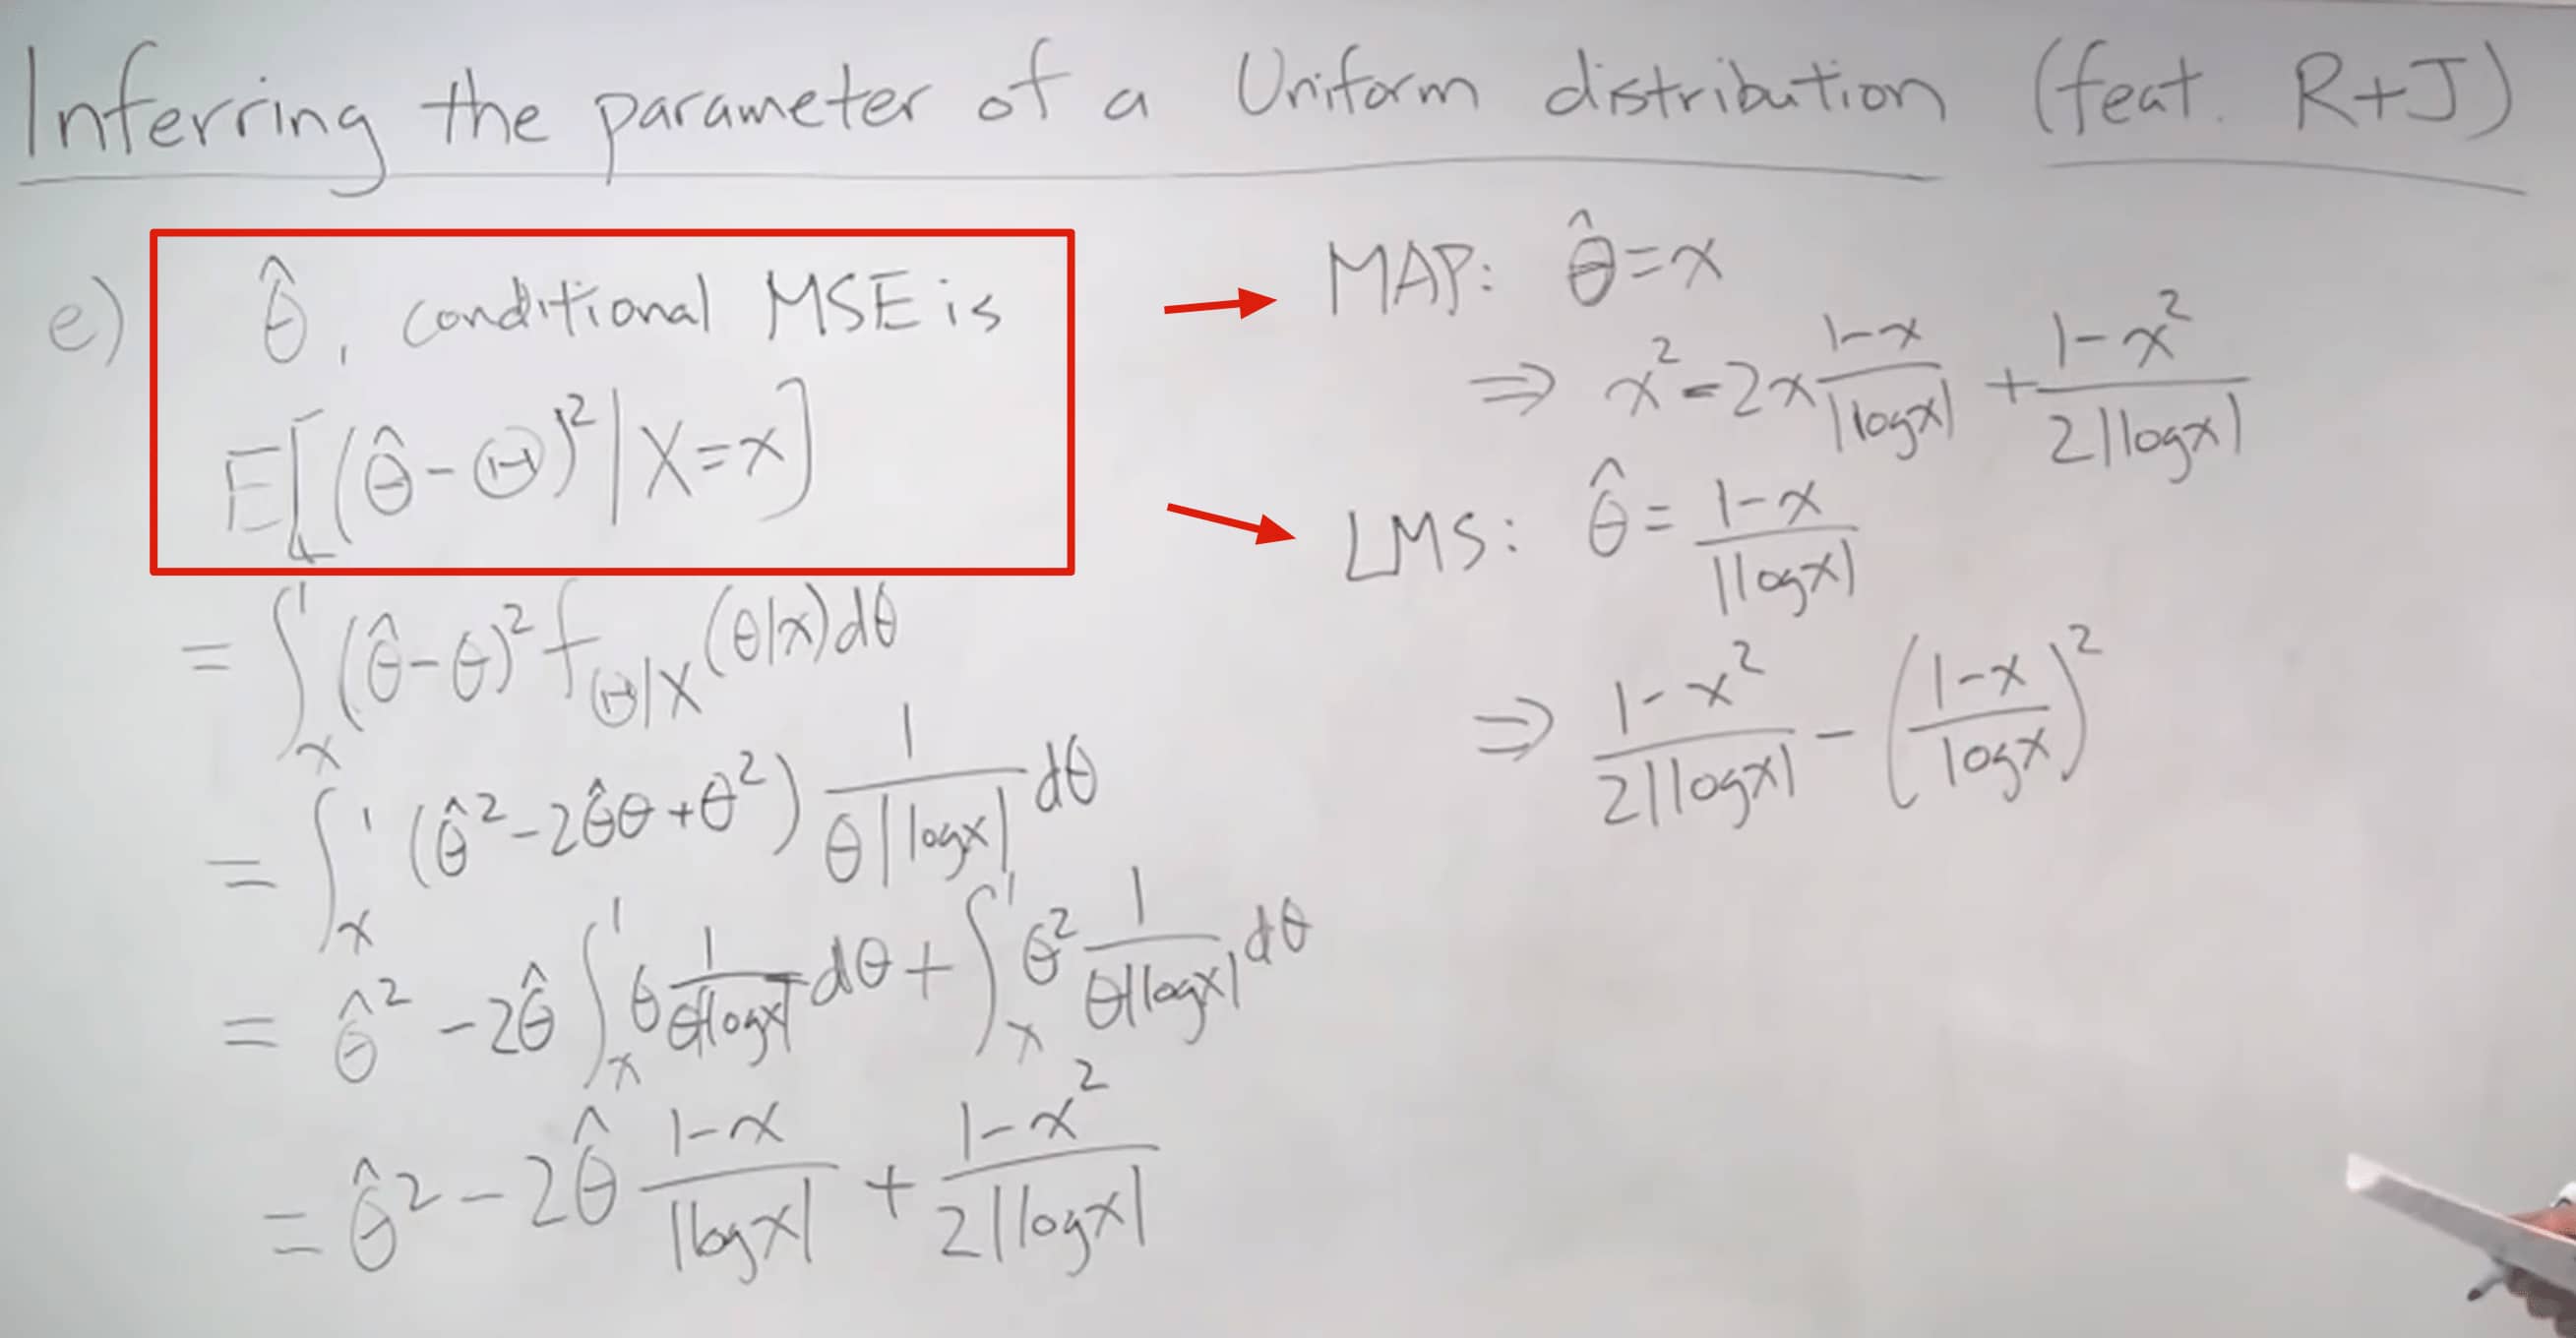 Inferring the parameter of a Uniform distribution (feat. R+J)
e) θ̂, conditional MSE is
E[(θ̂-Θ)²|X=x]
= ∫ₓ¹ (θ̂-θ)² f_Θ|X (θ|x)dθ
= ∫ₓ¹ (θ̂²-2θ̂θ+θ²) 1/(θ|logx|) dθ
= θ̂² - 2θ̂ ∫ₓ¹ θ 1/(θ|logx|) dθ + ∫ₓ¹ θ² 1/(θ|logx|) dθ
= θ̂² - 2θ̂ (1-x)/|logx| + (1-x²)/(2|logx|)
MAP: θ̂=x
⇒ x² - 2x (1-x)/|logx| + (1-x²)/(2|logx|)
LMS: θ̂ = (1-x)/|logx|
⇒ (1-x²)/(2|logx|) - ((1-x)/logx)²